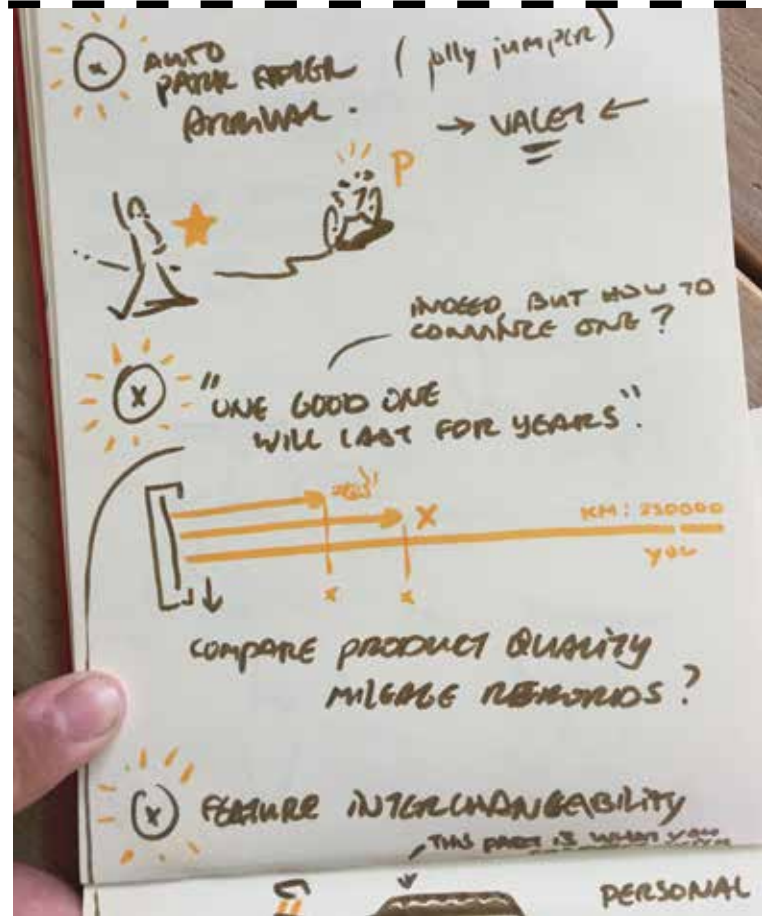 AUTO
PARK AFTER (jolly jumper)
ARRIVAL.
→ VALET ←
P
INDEED, BUT HOW TO
CONVINCE ONE?
x "ONE GOOD ONE
WILL LAST FOR YEARS".
X
KM: 250000
YOU
x x
COMPARE PRODUCT QUALITY
MILEAGE RECORDS?
x FEATURE INTERCHANGEABILITY
THIS PART IS WHAT YOU
PERSONAL